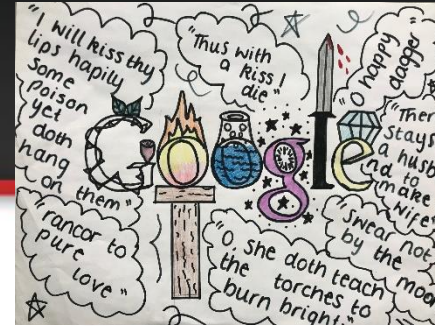 "I will kiss thy
lips hapily
Some
poison
yet
doth
hang
on them"
"Thus with
a kiss I
die"
"O happy
dagger"
Google
"Ther
stays
a husb
nd to
make
wife"
"rancor to
pure
love"
"O, she doth teach
the torches to
burn bright"
"Swear not
by the
moo